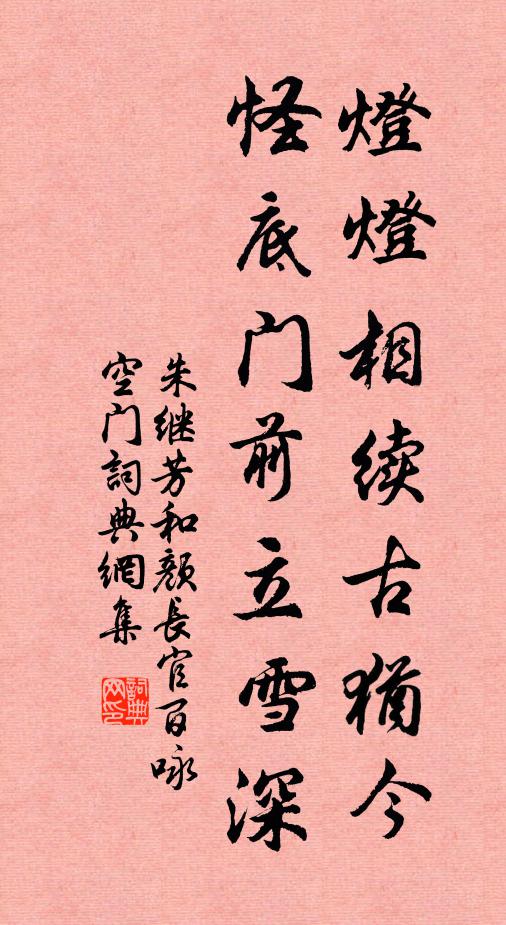 燈燈相续古猶今
怪底门前立雪深
朱继芳和颜長官百咏
空门詞典網集
詞典网印